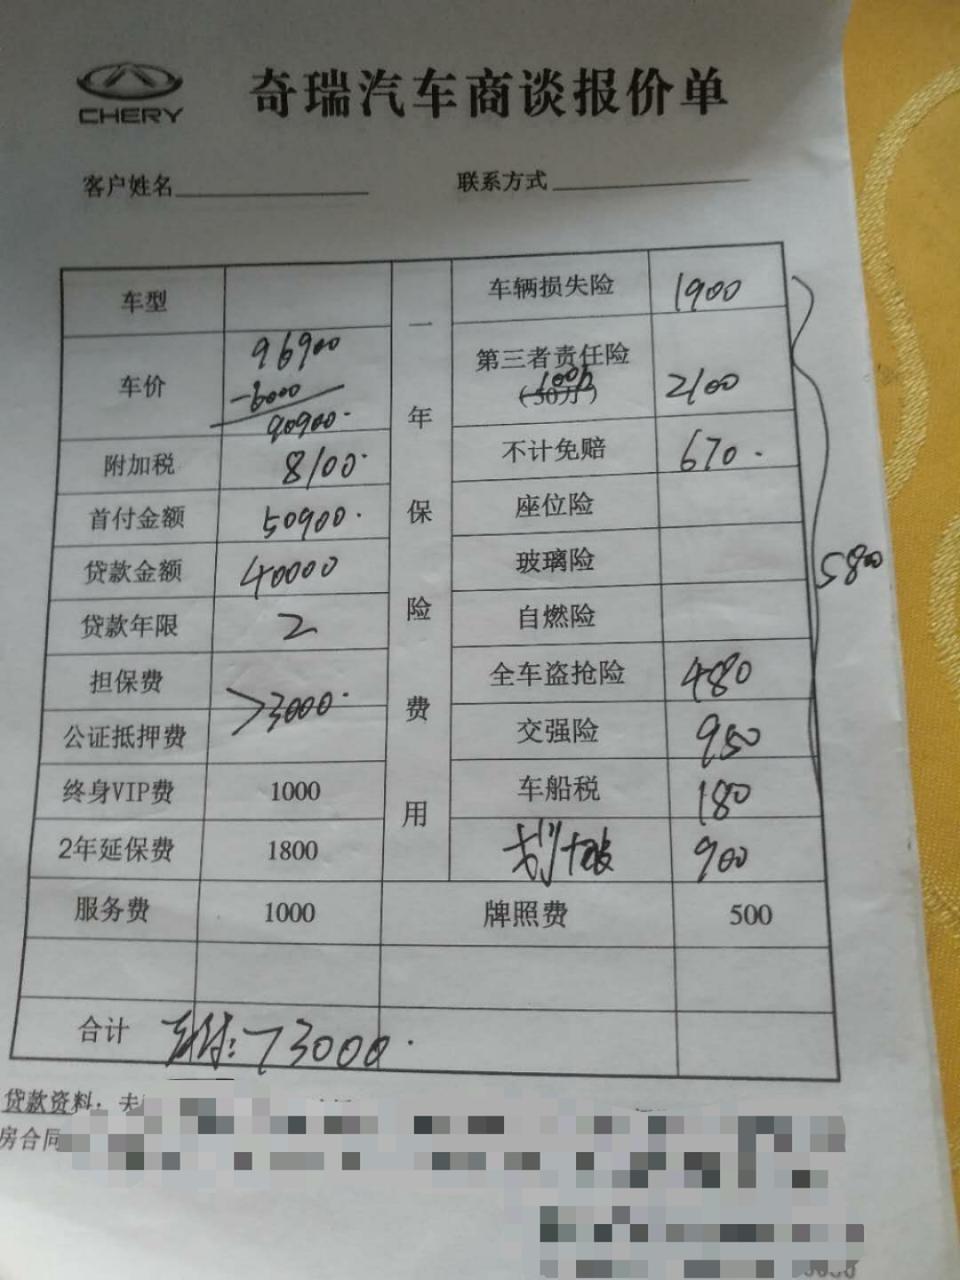 CHERY
奇瑞汽车商谈报价单
客户姓名
联系方式
车型
车价
96900
-6000
90900.
附加税
8100.
首付金额
50900.
贷款金额
40000
贷款年限
2
担保费
公证抵押费
>3000.
终身VIP费
1000
2年延保费
1800
服务费
1000
一年保险费用
车辆损失险
1900
第三者责任险
100万
(50万)
2100
不计免赔
670.
座位险
玻璃险
自燃险
全车盗抢险
480
交强险
950
车船税
180
900
5800
牌照费
500
合计
73000.
贷款资料：夫
房合同